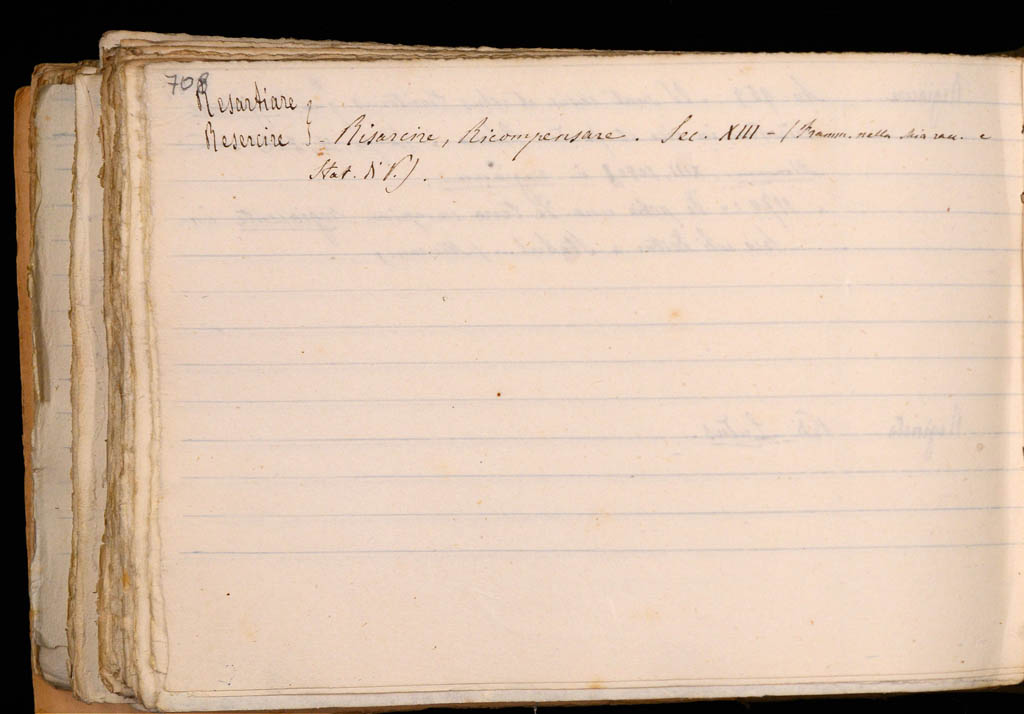 708
Resartiare }
Resercire } - Risarcire, Ricompensare. Sec. XIII - (Framm. nella mia racc. e
Stat. di V.).